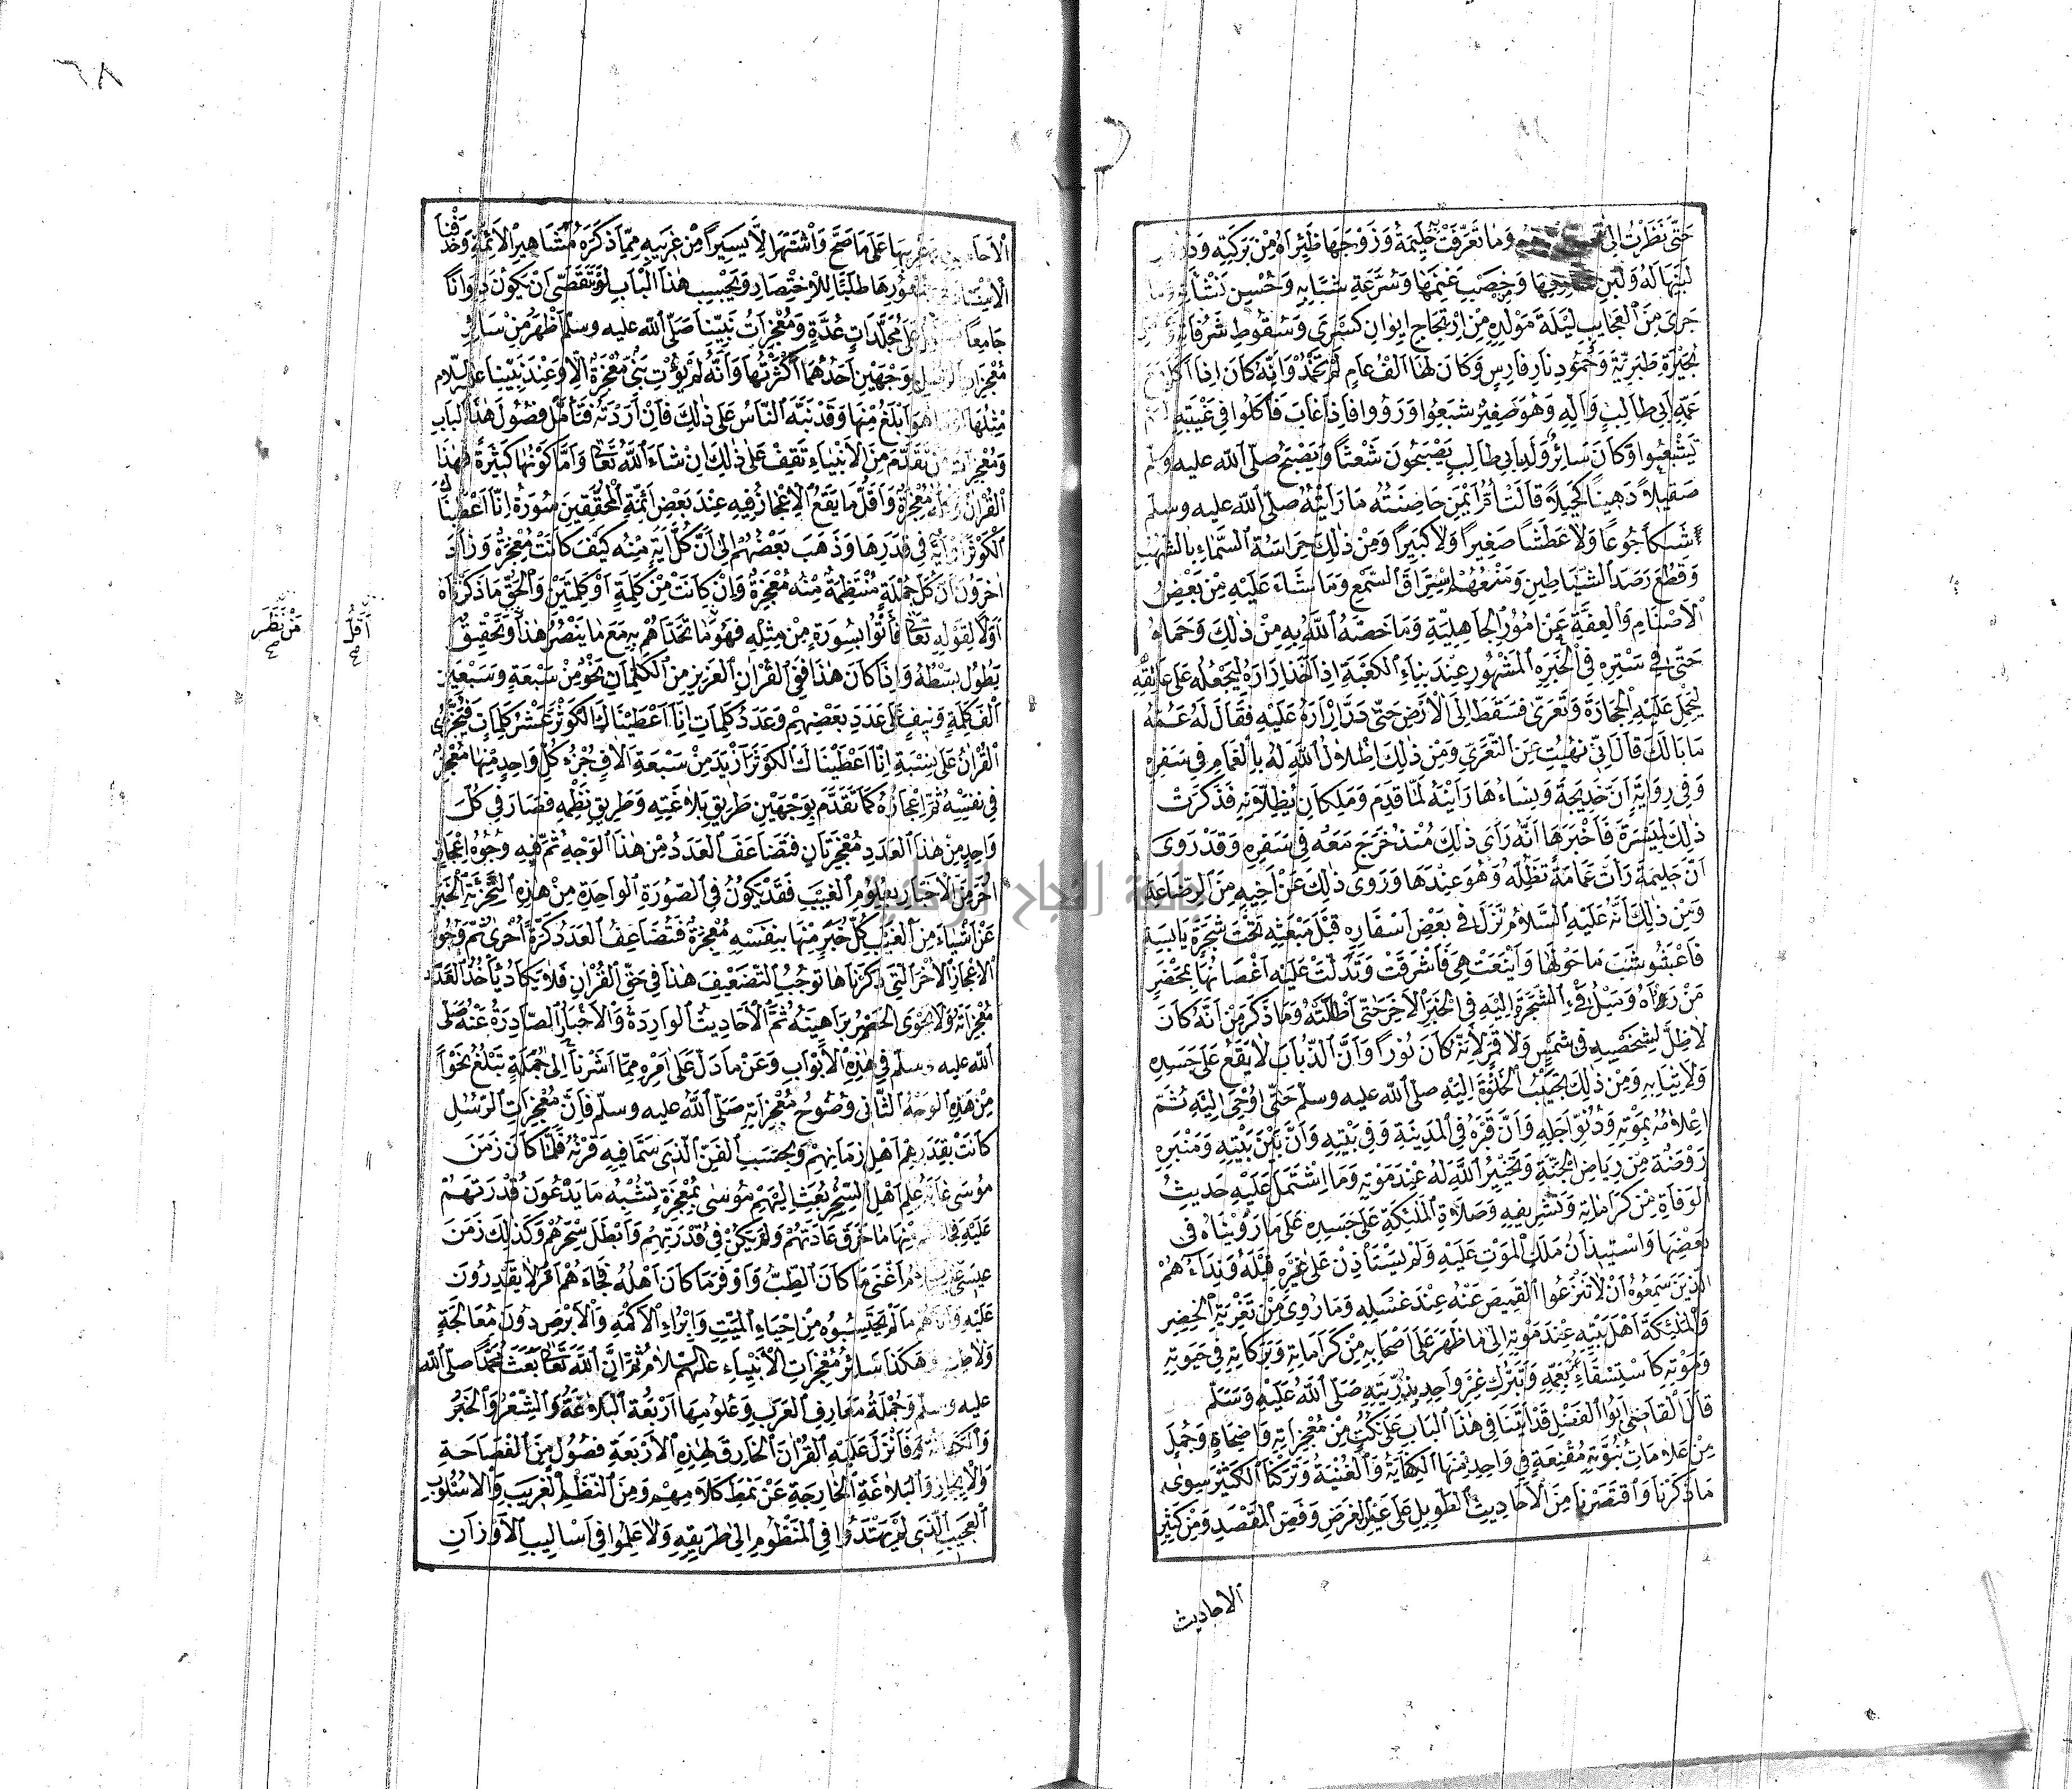 حَتَّى نَظَرْتُ إِلَى وَمَا تَعَرَّفَتْ حَلِيمَةُ وَزَوْجُهَا ظِئْرَاهُ مِنْ بَرَكَتِهِ
لَبَنِهَا لَهُ وَلَبَنِ وَخِصْبِ غَنَمِهَا وَسُرْعَةِ شَبَابِهِ وَحُسْنِ نَشْأَتِهِ
جَرَى مِنَ الْعَجَايِبِ لَيْلَةَ مَوْلِدِهِ مِنِ ارْتِجَاجِ اِيوَانِ كِسْرَى وَسُقُوطِ شُرُفَاتِهِ
بُحَيْرَةِ طَبَرِيَّةَ وَخُمُودِ نَارِ فَارِسَ وَكَانَ لَهَا أَلْفُ عَامٍ لَمْ تَخْمُدْ وَأَنَّهُ كَانَ إِذَا أَكَلَ مَعَ
عَمِّهِ أَبِي طَالِبٍ وَآلِهِ وَهُوَ صَغِيرٌ شَبِعُوا وَرَوُوا فَإِذَا غَابَ فَأَكَلُوا فِي غَيْبَتِهِ لَمْ
يَشْبَعُوا وَكَانَ سَائِرُ وَلَدِ أَبِي طَالِبٍ يُصْبِحُونَ شُعْثًا وَيُصْبِحُ صَلَّى الله عليه وسلم
صَقِيلًا دَهِينًا كَحِيلًا قَالَتْ أُمُّ أَيْمَنَ حَاضِنَتُهُ مَا رَأَيْتُهُ صَلَّى الله عليه وسلم
شَكَا جُوعًا وَلَا عَطَشًا صَغِيرًا وَلَا كَبِيرًا وَمِنْ ذٰلِكَ حِرَاسَةُ السَّمَاءِ بِالشُّهُبِ
وَقَطْعُ رَصَدِ الشَّيَاطِينِ وَمَنْعُهُمُ اسْتِرَاقَ السَّمْعِ وَمَا نَشَاءَ عَلَيْهِ مِنْ بُغْضِ
الْأَصْنَامِ وَالْعِفَّةِ عَنْ أُمُورِ الْجَاهِلِيَّةِ وَمَا خَصَّهُ اللهُ بِهِ مِنْ ذٰلِكَ وَحَمَاهُ
حَتَّى فِي سَتْرِهِ فِي الْخَبَرِ الْمَشْهُورِ عِنْدَ بِنَاءِ الْكَعْبَةِ إِذْ أَخَذَ إِزَارَهُ لِيَجْعَلَهُ عَلَى عَاتِقِهِ
لِيَحْمِلَ عَلَيْهِ الْحِجَارَةَ وَتَعَرَّى فَسَقَطَ إِلَى الْأَرْضِ حَتَّى رَدَّ إِزَارَهُ عَلَيْهِ فَقَالَ لَهُ عَمُّهُ
مَا بَالُكَ قَالَ إِنِّي نُهِيتُ عَنِ التَّعَرِّي وَمِنْ ذٰلِكَ إِظْلَالُ اللهِ لَهُ بِالْغَمَامِ فِي سَفَرِهِ
وَفِي رِوَايَةٍ أَنَّ خَدِيجَةَ وَنِسَاءَهَا رَأَيْنَهُ لَمَّا قَدِمَ وَمَلَكَانِ يُظِلَّانِهِ فَذَكَرَتْ
ذٰلِكَ لِمَيْسَرَةَ فَأَخْبَرَهَا أَنَّهُ رَأَى ذٰلِكَ مُنْذُ خَرَجَ مَعَهُ فِي سَفَرِهِ وَقَدْ رُوِيَ
أَنَّ حَلِيمَةَ رَأَتْ غَمَامَةً تُظِلُّهُ وَهُوَ عِنْدَهَا وَرُوِيَ ذٰلِكَ عَنْ أَخِيهِ مِنَ الرَّضَاعَةِ
وَمِنْ ذٰلِكَ أَنَّهُ عَلَيْهِ السَّلَامُ نَزَلَ فِي بَعْضِ أَسْفَارِهِ قَبْلَ مَبْعَثِهِ تَحْتَ شَجَرَةٍ يَابِسَةٍ
فَاعْشَوْشَبَ مَا حَوْلَهَا وَأَيْنَعَتْ هِيَ فَأَشْرَقَتْ وَتَدَلَّتْ عَلَيْهِ أَغْصَانُهَا بِمَحْضَرِ
مَنْ رَآهُ وَمَيْلُ فَيْءِ الشَّجَرَةِ إِلَيْهِ فِي الْخَبَرِ الْآخَرِ حَتَّى أَظَلَّتْهُ وَمَا ذُكِرَ مِنْ أَنَّهُ كَانَ
لَا ظِلَّ لِشَخْصِهِ فِي شَمْسٍ وَلَا قَمَرٍ لِأَنَّهُ كَانَ نُورًا وَأَنَّ الذُّبَابَ لَا يَقَعُ عَلَى جَسَدِهِ
وَلَا ثِيَابِهِ وَمِنْ ذٰلِكَ تَحْبِيبُ الْخَلْوَةِ إِلَيْهِ صلى الله عليه وسلم حَتَّى أُوحِيَ إِلَيْهِ ثُمَّ
إِعْلَامُهُ بِمَوْتِهِ وَدُنُوِّ أَجَلِهِ وَأَنَّ قَبْرَهُ فِي الْمَدِينَةِ وَفِي بَيْتِهِ وَأَنَّ بَيْنَ بَيْتِهِ وَمِنْبَرِهِ
رَوْضَةٌ مِنْ رِيَاضِ الْجَنَّةِ وَتَخْيِيرُ اللهِ لَهُ عِنْدَ مَوْتِهِ وَمَا اشْتَمَلَ عَلَيْهِ حَدِيثُ
الْوَفَاةِ مِنْ كَرَامَاتِهِ وَتَشْرِيفِهِ وَصَلَاةِ الْمَلٰئِكَةِ عَلَى جَسَدِهِ عَلَى مَا رُوِّينَاهُ فِي
بَعْضِهَا وَاسْتِيذَانُ مَلَكِ الْمَوْتِ عَلَيْهِ وَلَمْ يَسْتَأْذِنْ عَلَى غَيْرِهِ قَبْلَهُ وَنِدَاءُهُمْ
الَّذِينَ سَمِعُوهُ أَنْ لَا تَنْزِعُوا الْقَمِيصَ عَنْهُ عِنْدَ غَسْلِهِ وَمَا رُوِيَ مِنْ تَعْزِيَةِ الْخَضِرِ
وَالْمَلٰئِكَةِ أَهْلَ بَيْتِهِ عِنْدَ مَوْتِهِ إِلَى مَا ظَهَرَ عَلَى أَصْحَابِهِ مِنْ كَرَامَاتِهِ وَبَرَكَاتِهِ فِي حَيٰوتِهِ
وَمَوْتِهِ كَاسْتِسْقَاءِ بِعَمِّهِ وَتَبَرُّكِ غَيْرِ وَاحِدٍ بِذُرِّيَّتِهِ صَلَّى اللهُ عَلَيْهِ وَسَلَّمَ
قَالَ الْقَاضِي أَبُو الْفَضْلِ قَدْ أَتَيْنَا فِي هٰذَا الْبَابِ عَلَى نُكَتٍ مِنْ مُعْجِزَاتِهِ وَاضِحَةٍ وَجُمَلٍ
مِنْ عَلَامَاتِ نُبُوَّتِهِ مُقْنِعَةٍ فِي وَاحِدٍ مِنْهَا الْكِفَايَةُ وَالْغُنْيَةُ وَتَرَكْنَا الْكَثِيرَ سِوَى
مَا ذَكَرْنَا وَاقْتَصَرْنَا مِنَ الْأَحَادِيثِ الطَّوِيلِ عَلَى عَيْنِ الْغَرَضِ وَفَصِّ الْمَقْصَدِ وَمِنْ كَثِيرِ
الاحاديث
٨٦
الْأَحَادِيثِ وَغَرِيبِهَا عَلَى مَا صَحَّ وَاشْتَهَرَ إِلَّا يَسِيرًا مِنْ غَرِيبِهِ مِمَّا ذَكَرَهُ مَشَاهِيرُ الْأَئِمَّةِ وَحَذَفْنَا
الْإِسْنَادَ فِي جُمْهُورِهَا طَلَبًا لِلْاِخْتِصَارِ وَبِحَسْبِ هٰذَا الْبَابِ لَوْ تُقُصِّيَ أَنْ يَكُونَ دِيوَانًا
جَامِعًا يَشْتَمِلُ عَلَى مُجَلَّدَاتٍ عِدَّةٍ وَمُعْجِزَاتُ نَبِيِّنَا صَلَّى الله عليه وسلم أَظْهَرُ مِنْ سَائِرِ
مُعْجِزَاتِ الرُّسُلِ بِوَجْهَيْنِ أَحَدُهُمَا كَثْرَتُهَا وَأَنَّهُ لَمْ يُؤْتَ نَبِيٌّ مُعْجِزَةً إِلَّا وَعِنْدَ نَبِيِّنَا عليه السلام
مِثْلُهَا أَوْ مَا هُوَ أَبْلَغُ مِنْهَا وَقَدْ نَبَّهَ النَّاسُ عَلَى ذٰلِكَ فَإِنْ أَرَدْتَهُ فَتَأَمَّلْ فُصُولَ هٰذَا الْبَابِ
وَمُعْجِزَاتِ مَنْ تَقَدَّمَ مِنَ الْأَنْبِيَاءِ تَقِفْ عَلَى ذٰلِكَ إِنْ شَاءَ اللهُ تَعَالَى وَأَمَّا كَوْنُهَا كَثِيرَةً فَهٰذَا
الْقُرْآنُ وَكُلُّهُ مُعْجِزَةٌ وَأَقَلُّ مَا يَقَعُ الْإِعْجَازُ فِيهِ عِنْدَ بَعْضِ أَئِمَّةِ الْمُحَقِّقِينَ سُورَةُ إِنَّا أَعْطَيْنَاكَ
الْكَوْثَرَ أَوْ آيَةٌ فِي قَدْرِهَا وَذَهَبَ بَعْضُهُمْ إِلَى أَنَّ كُلَّ آيَةٍ مِنْهُ كَيْفَ كَانَتْ مُعْجِزَةٌ وَزَادَ
آخَرُونَ أَنَّ كُلَّ جُمْلَةٍ مُنْتَظِمَةٍ مِنْهُ مُعْجِزَةٌ وَإِنْ كَانَتْ مِنْ كَلِمَةٍ أَوْ كَلِمَتَيْنِ وَالْحَقُّ مَا ذَكَرْنَاهُ
أَوَّلًا لِقَوْلِهِ تَعَالَى فَأْتُوا بِسُورَةٍ مِنْ مِثْلِهِ فَهُوَ مَا تَحَدَّاهُمْ بِهِ مَعَ مَا يَنْصُرُ هٰذَا وَتَحْقِيقٌ
أَقَلُّ صح
مِنْ نَظَرٍ صح
يَطُولُ بَسْطُهُ وَإِذَا كَانَ هٰذَا فَفِي الْقُرْآنِ الْعَزِيزِ مِنَ الْكَلِمَاتِ نَحْوٌ مِنْ سَبْعَةٍ وَسَبْعِينَ
أَلْفَ كَلِمَةٍ وَنَيِّفٍ عَلَى عَدَدِ بَعْضِهِمْ وَعَدَدُ كَلِمَاتِ إِنَّا أَعْطَيْنَاكَ الْكَوْثَرَ عَشْرُ كَلِمَاتٍ فَتَجَزَّى
الْقُرْآنُ عَلَى نِسْبَةِ إِنَّا أَعْطَيْنَاكَ الْكَوْثَرَ أَزْيَدَ مِنْ سَبْعَةِ آلَافِ جُزْءٍ كُلُّ وَاحِدٍ مِنْهَا مُعْجِزٌ
فِي نَفْسِهِ ثُمَّ إِعْجَازُهُ كَمَا تَقَدَّمَ بِوَجْهَيْنِ طَرِيقِ بَلَاغَتِهِ وَطَرِيقِ نَظْمِهِ فَصَارَ فِي كُلِّ
وَاحِدٍ مِنْ هٰذَا الْعَدَدِ مُعْجِزَتَانِ فَتَضَاعَفَ الْعَدَدُ مِنْ هٰذَا الْوَجْهِ ثُمَّ فِيهِ وُجُوهُ إِعْجَازٍ
أُخَرُ مِنَ الْأَخْبَارِ بِعُلُومِ الْغَيْبِ فَقَدْ يَكُونُ فِي السُّورَةِ الْوَاحِدَةِ مِنْ هٰذِهِ التَّجْزِئَةِ الْخَبَرُ
عَنْ أَشْيَاءَ مِنَ الْغَيْبِ كُلُّ خَبَرٍ مِنْهَا بِنَفْسِهِ مُعْجِزَةٌ فَتُضَاعِفُ الْعَدَدُ كَرَّةً أُخْرَى ثُمَّ وُجُوهُ
الْإِعْجَازِ الْأُخَرُ الَّتِي ذَكَرْنَاهَا تُوجِبُ التَّضْعِيفَ هٰذَا فِي حَقِّ الْقُرْآنِ فَلَا يَكَادُ يَأْخُذُ الْعَدَدُ
مُعْجِزَاتِهِ وَلَا يَحْوِي الْحَصْرُ بَرَاهِينَهُ ثُمَّ الْأَحَادِيثُ الْوَارِدَةُ وَالْأَخْبَارُ الصَّادِرَةُ عَنْهُ صَلَّى
الله عليه وسلم فِي هٰذِهِ الْأَبْوَابِ وَعَنْ مَا دَلَّ عَلَى أَمْرِهِ مِمَّا أَشَرْنَا إِلَى جُمَلِهِ تَبْلُغُ نَحْوًا
مِنْ هٰذِهِ الْوَجْهُ الثَّانِي وُضُوحُ مُعْجِزَاتِهِ صَلَّى اللهُ عليه وسلم فَإِنَّ مُعْجِزَاتِ الرُّسُلِ
كَانَتْ بِقَدْرِ هِمَمِ أَهْلِ زَمَانِهِمْ وَبِحَسَبِ الْفَنِّ الَّذِي سَمَا فِيهِ قَرْنُهُ فَلَمَّا كَانَ زَمَنُ
مُوسَى غَايَةُ عِلْمِ أَهْلِهِ السِّحْرُ بُعِثَ إِلَيْهِمْ مُوسَى بِمُعْجِزَةٍ تُشْبِهُ مَا يَدَّعُونَ قُدْرَتَهُمْ
عَلَيْهِ فَجَاءَهُمْ مِنْهَا مَا خَرَقَ عَادَتَهُمْ وَلَمْ يَكُنْ فِي قُدْرَتِهِمْ وَأَبْطَلَ سِحْرَهُمْ وَكَذٰلِكَ زَمَنَ
عِيسَى أَغْنَى مَا كَانَ الطِّبُّ وَأَوْفَرَ مَا كَانَ أَهْلُهُ فَجَاءَهُمْ أَمْرٌ لَا يَقْدِرُونَ
عَلَيْهِ وَأَتَاهُمْ مَا لَمْ يَحْتَسِبُوهُ مِنْ إِحْيَاءِ الْمَيِّتِ وَإِبْرَاءِ الْأَكْمَهِ وَالْأَبْرَصِ دُونَ مُعَالَجَةٍ
وَلَا طِبٍّ وَهٰكَذَا سَائِرُ مُعْجِزَاتِ الْأَنْبِيَاءِ عليهم السَّلَامُ ثُمَّ إِنَّ اللهَ تَعَالَى بَعَثَ مُحَمَّدًا صلى الله
عليه وسلم وَجُمْلَةُ مَعَارِفِ الْعَرَبِ وَعُلُومِهَا أَرْبَعَةٌ الْبَلَاغَةُ وَالشِّعْرُ وَالْخَبَرُ
وَالْكَهَانَةُ فَأَنْزَلَ عَلَيْهِ الْقُرْآنَ الْخَارِقَ لِهٰذِهِ الْأَرْبَعَةِ فُصُولٍ مِنَ الْفَصَاحَةِ
وَالْإِيجَازِ وَالْبَلَاغَةِ الْخَارِجَةِ عَنْ نَمَطِ كَلَامِهِمْ وَمِنَ النَّظْمِ الْغَرِيبِ وَالْأُسْلُوبِ
الْعَجِيبِ الَّذِي لَمْ يَهْتَدُوا فِي الْمَنْظُومِ إِلَى طَرِيقِهِ وَلَا عَلِمُوا فِي أَسَالِيبِ الْأَوْزَانِ
جامعة النجاح الوطنية